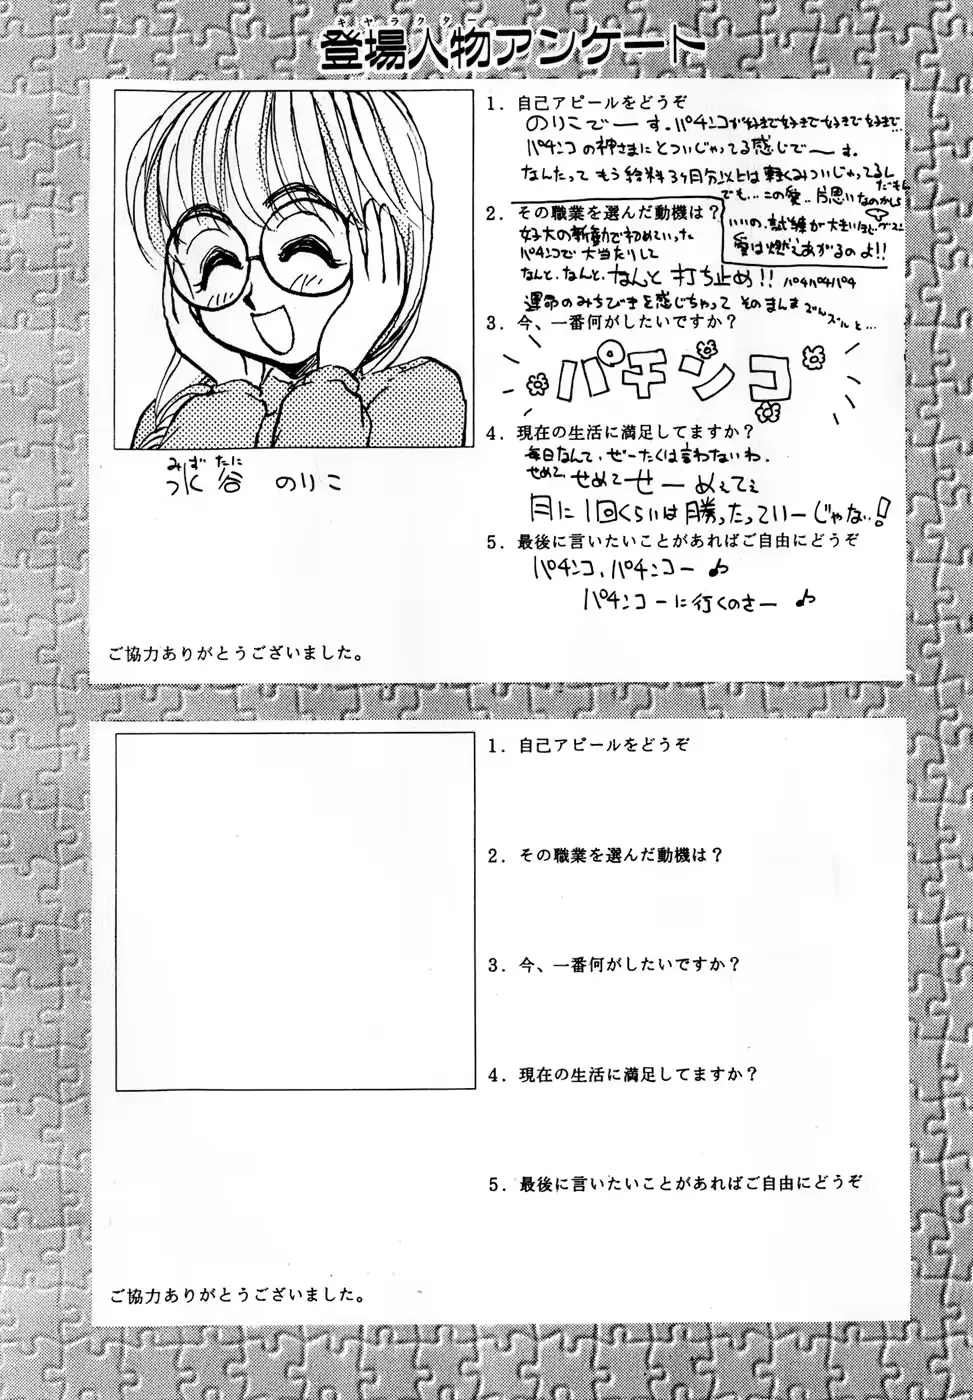 キャラクター
登場人物アンケート
1. 自己アピールをどうぞ
のりこでーす。パチンコが好きで好きで好きで好きで…
パチンコの神さまにとついじゃってる感じでーす。
なんたって もう給料3ヶ月分以上は軽くみついじゃってるし
でも…この愛…片思いなのかしら
いいの、試練が大きいほど
愛は燃えあがるのよ!!
2. その職業を選んだ動機は?
パチンコで大当たりして
なんと、なんと、なんと 打ち止め!! パチパチパチ
運命のみちびきを感じちゃって そのまんま ずんズルと…
3. 今、一番何がしたいですか?
パチンコ
4. 現在の生活に満足してますか?
毎日なんて、ぜーたくは言わないわ。
せめて、せめてせーめぇてぇ
月に1回くらいは勝ったっていーじゃない!
5. 最後に言いたいことがあればご自由にどうぞ
パチンコ、パチンコー♪
パチンコーに行くのさー♪
みず たに
水谷 のりこ
ご協力ありがとうございました。
1. 自己アピールをどうぞ
2. その職業を選んだ動機は?
3. 今、一番何がしたいですか?
4. 現在の生活に満足してますか?
5. 最後に言いたいことがあればご自由にどうぞ
ご協力ありがとうございました。